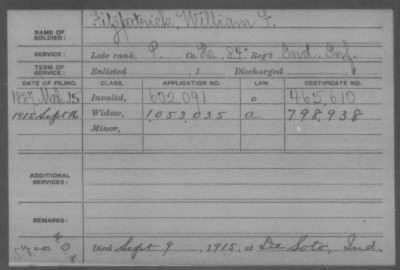 NAME OF SOLDIER: Fitzpatrick, William F.
SERVICE: Late rank, P. Co. 84" Reg't Ind. Inf.
TERM OF SERVICE: Enlisted , 1 Discharged , 1
DATE OF FILING. CLASS. APPLICATION NO. LAW. CERTIFICATE NO.
1887, Mch. 15 Invalid, 602,091 465,610
1915 Sept 16 Widow, 1,053,035 a 798,938
Minor,
ADDITIONAL SERVICES:
REMARKS:
Died Sept 9, 1915, at De Soto, Ind.